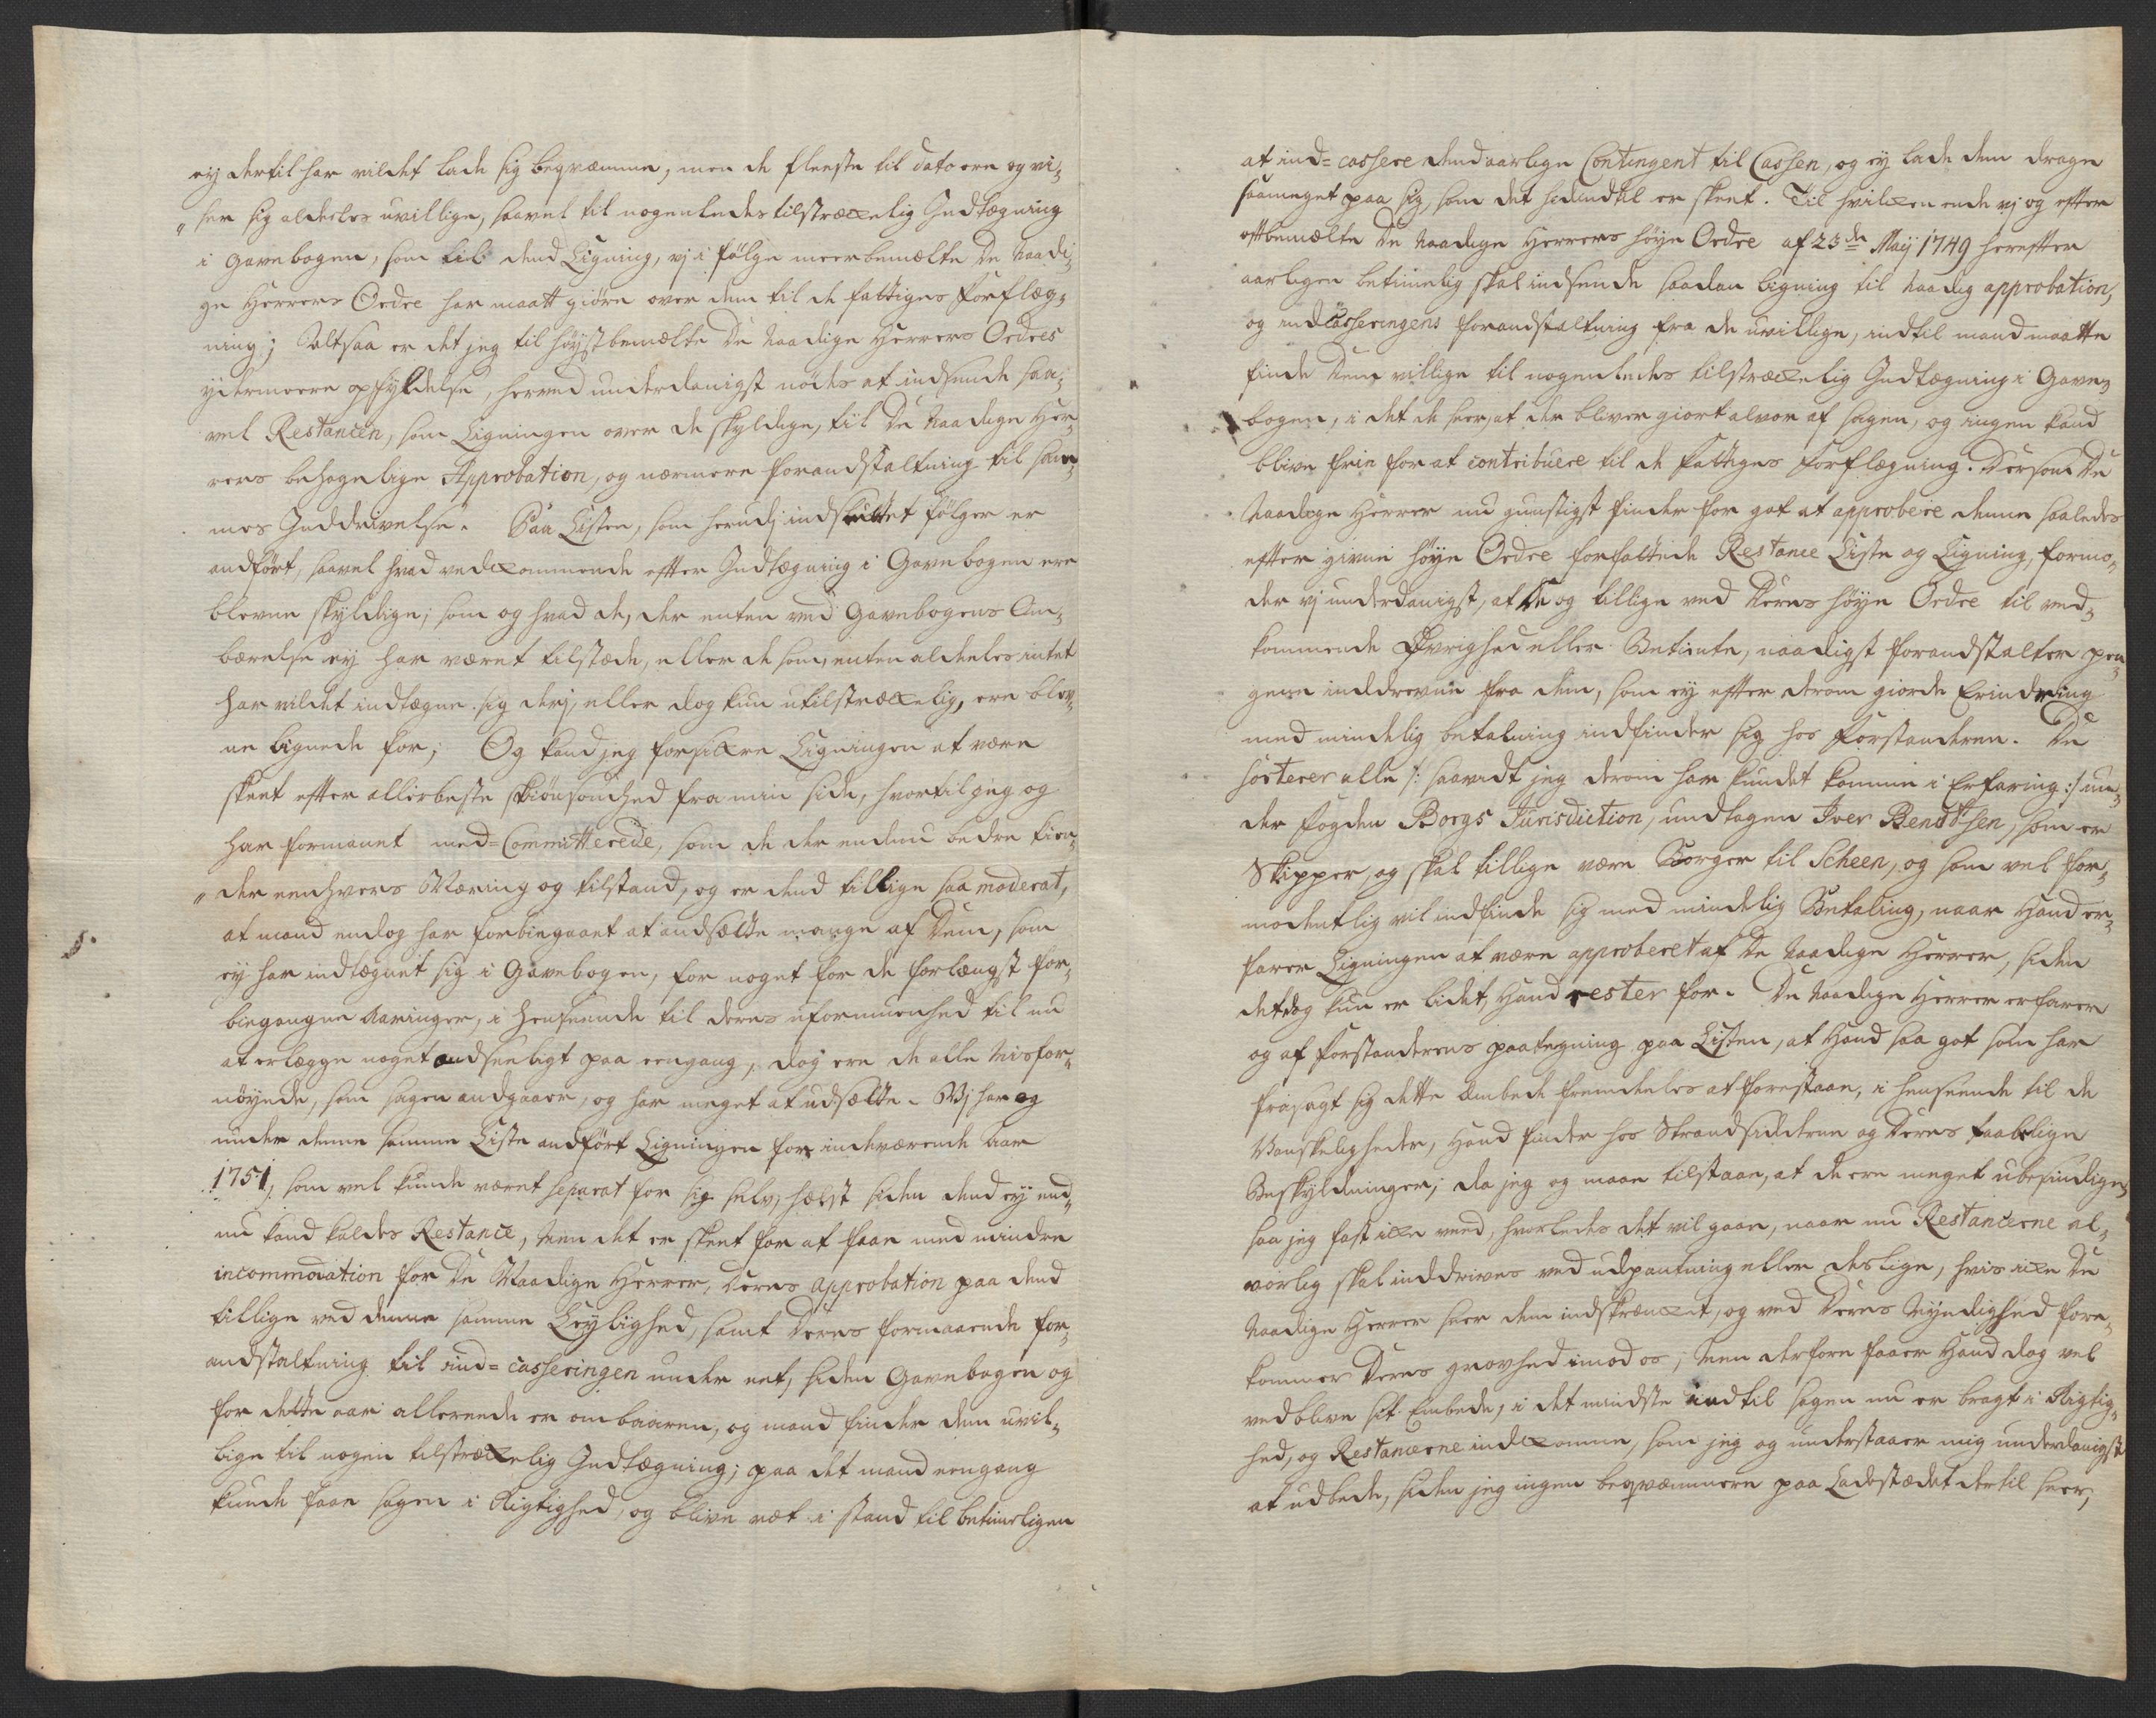 ey dertil har vildet lade sig beqvæmme, men de fleeste til dato ere og vi-
ser sig aldeeles uvillige, saavel til nogenledes tilstræckelig Indtægning
i Gavebogen, som til dend Ligning, vj i følge meerbemælte De Naadi-
ge Herrers Ordre har maatt giøre over dem til de fattiges forflæg-
ning; Altsaa er det jeg til høystbemælte De Naadige Herrers Ordres
ydermeere opfyldelse, herved underdanigst nødes at indsende saa-
vel Restancen, som Ligningen over de skyldige, til De Naadige Her-
rers behagelige Approbation, og nærmere forandstaltning til sam-
mes Inddrivelse. Paa Listen, som herudj indsluttet følger er
andført, saavel hvad vedkommende efter Indtægning i Gavebogen ere
blevne skyldige; som og hvad de, der enten ved Gavebogens Om-
bærelse ey har været tilstæde, eller de som, enten aldeeles intet
har vildet indtægne sig derj, eller dog kun utilstræckelig, ere blev-
ne lignede for; Og kand jeg forsickre Ligningen at være
skeet efter allerbeste skiønsomhed fra min side, hvortil jeg og
har formanet med-Committerede, som de der endnu bedre kien-
der eenhvers Næring og tilstand, og er dend tillige saa moderat,
at mand endog har forbiegaaet at andsætte mange af Dem, som
ey har indtegnet sig i Gavebogen, for noget for de forlængst for-
biegangne Aaringer, i henseende til deres uformuenhed til nu
at erlægge noget andseeligt paa eengang, dog ere de alle Misfor-
nøyede, som sagen andgaaer, og har meget at udsætte. Vj har og
under denne samme Liste andført Ligningen for indeværende Aar
1751, som vel kunde været separat for sig selv, hælst siden dend ey end-
nu kand kaldes Restance, Men det er skeet for at faae med mindre
incommodation for De Naadige Herrer, Deres approbation paa dend
tillige ved denne samme Leylighed, samt Deres formaaende for-
andstaltning til ind-casseringen under eet, siden Gavebogen og
for dette aar allereede er ombaaren, og mand finder dem uvil-
lige til nogen tilstræckelig Indtægning; paa det mand eengang
kunde faae sagen i Rigtighed, og blive ræt i stand til betimeligen
at ind-cassere dend aarlige Contingent til Cassen, og ey lade dem drage
saameget paa sig, som det hidindtil er skeet. Til hvilcken ende vj og efter
oftbemælte De Naadige Herrers høye Ordre af 23de Maij 1749 herefter
aarligen betimelig skal indsende saadan Ligning til Naadig approbation,
og indcasseringens forandstaltning fra de uvillige, indtil mand maatte
finde Dem villige til nogenledes tilstræckelig Indtægning i Gave-
bogen, i det de seer, at der bliver giort alvor af sagen, og ingen kand
blive frie for at contribuere til de fattiges forflægning. Dersom De
Naadige Herrer nu gunstigst finder for got at approbere denne saaledes
efter givne høye Ordre forfattede Restance Liste og Ligning, formo-
der vj underdanigst, at De og tillige ved Deres høye Ordre til ved-
kommende Øvrighed eller Betiente, naadigst forandstalter pen-
gene inddrevne fra dem, som ey efter derom giorde Erindring
med mindelig betalning indfinder sig hos forstanderen. De
sorterer alle /: saavidt jeg derom har kundet komme i Erfaring :/ un-
der fogden Borgs Jurisdiction, undtagen Iver Bendtsen, som er
Skipper og skal tillige være Borger til Scheen, og som vel for-
modentlig vil indfinde sig med mindelig Betaling, naar Hand er-
farer Ligningen at være approberet af De Naadige Herrer, siden
det dog kun er lidet, Hand rester for. De Naadige Herrer erfarer
og af forstanderens paategning paa Listen, at Hand saa got som har
frasagt sig dette Embede fremdeeles at forestaae, i henseende til de
Vanskeligheder, Hand finder hos Strandsidderne og Deres taabelige
Beskyldninger; da jeg og maae tilstaae, at de ere meget ubesindige,
saa jeg fast icke veed, hvorledes det vil gaae, naar nu Restancerne al-
vorlig skal inddrives ved udpantning eller deslige, hvis icke De
Naadige Herrer seer dem indskræncket, og ved Deres Myndighed fore-
kommer Deres grovhed imod os; Men derfore faaer Hand dog vel
vedblive sit Embede, i det mindste indtil sagen nu er bragt i Rigtig-
hed, og Restancerne indkomne, som jeg og understaaer mig underdanigst
at udbede, siden jeg ingen beqvæmmere paa Ladestædet dertil seer,